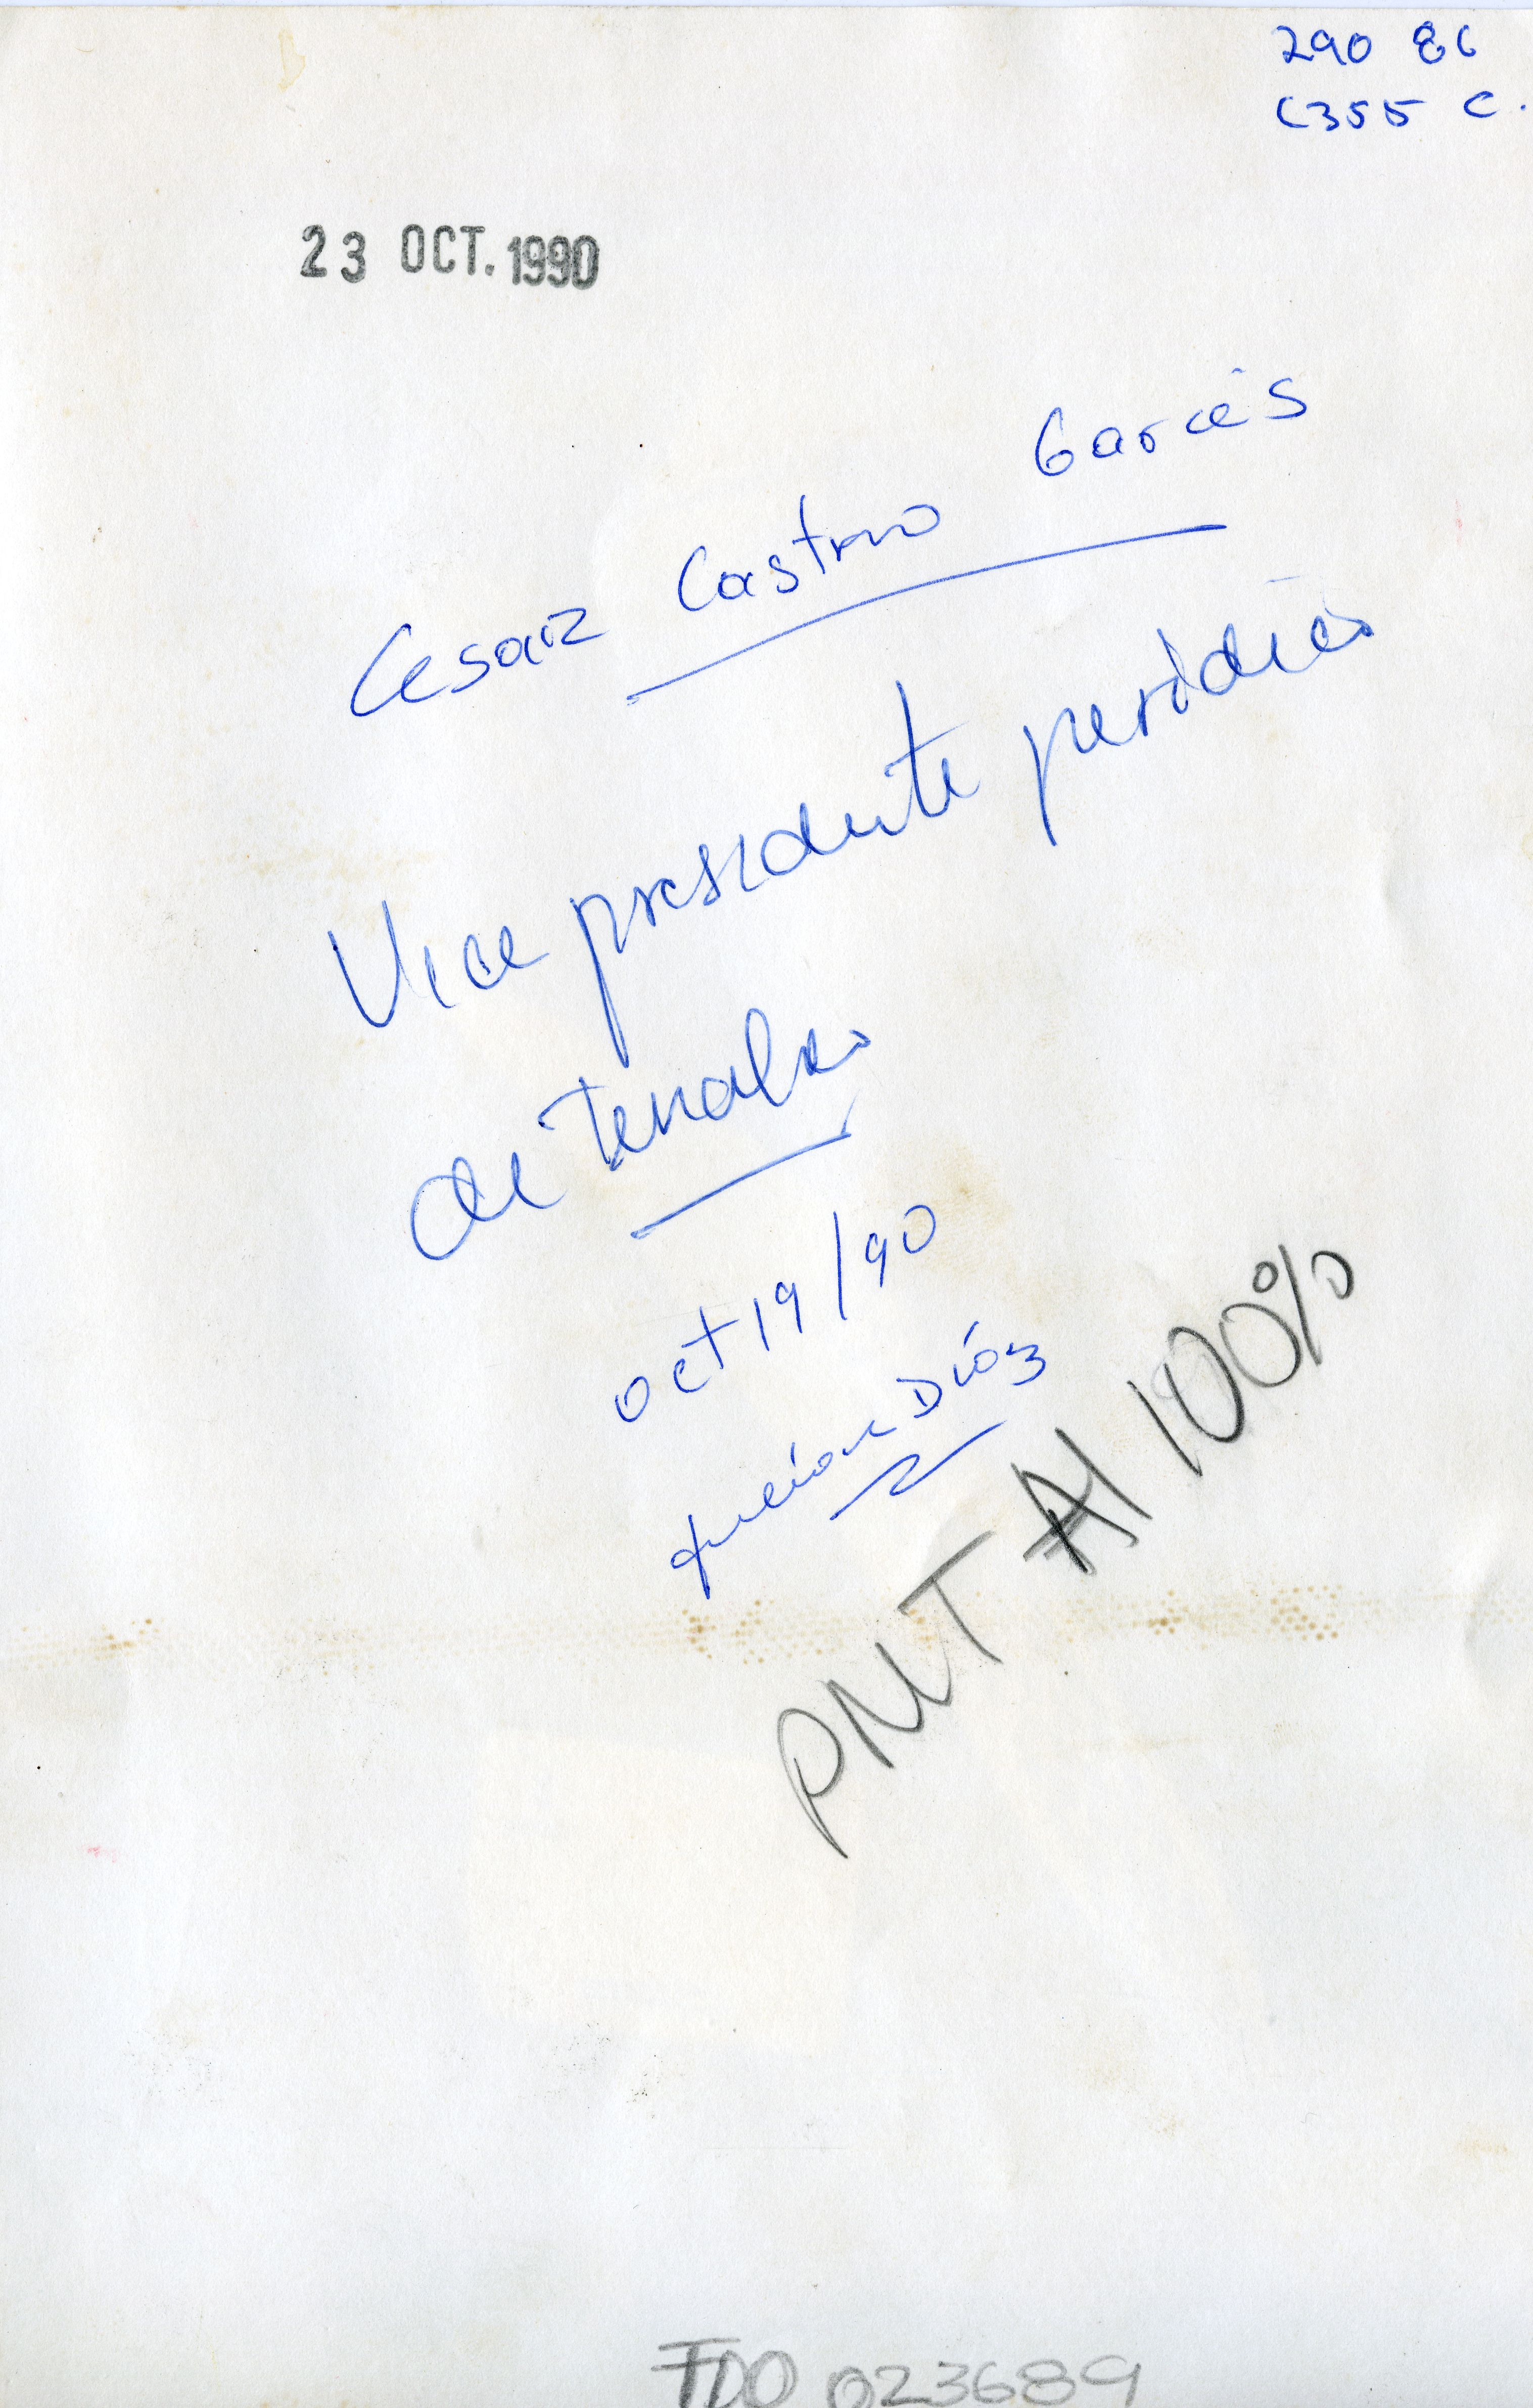 290 86
C355 C.
23 OCT. 1990
Cesar Castro Garcés
Vice presidente
de
oct 19/90
Díaz
PNT A1 100%
FDO 023689